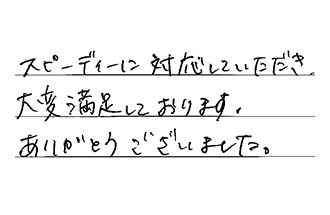 スピーディーに対応していただき、
大変満足しております。
ありがとうございました。